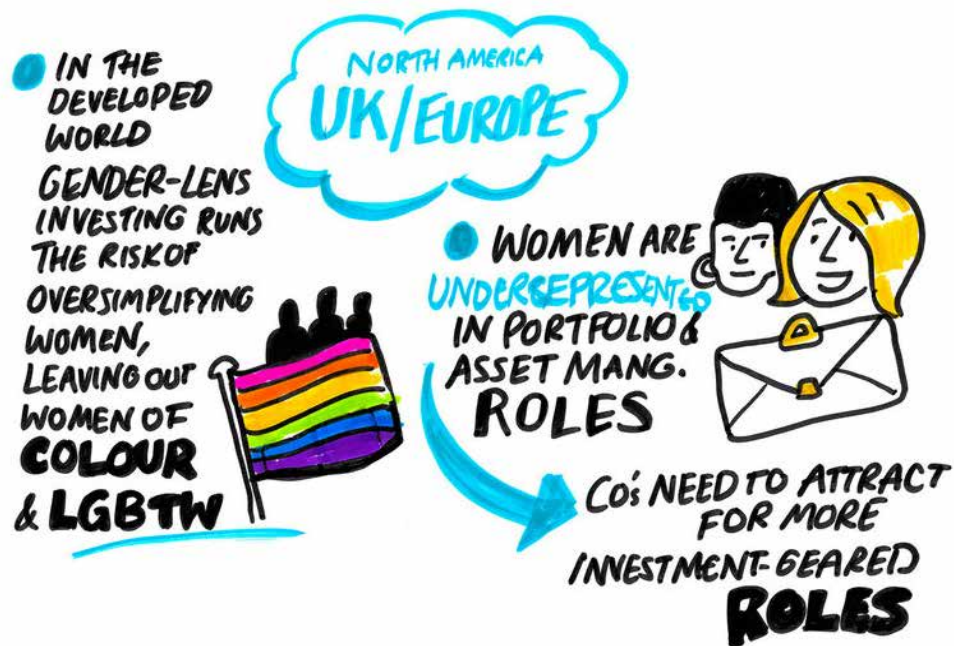 NORTH AMERICA
UK/EUROPE
IN THE
DEVELOPED
WORLD
GENDER-LENS
INVESTING RUNS
THE RISK OF
OVERSIMPLIFYING
WOMEN,
LEAVING OUT
WOMEN OF
COLOUR
& LGBTW
WOMEN ARE
UNDERREPRESENTED
IN PORTFOLIO &
ASSET MANG.
ROLES
CO'S NEED TO ATTRACT
FOR MORE
INVESTMENT-GEARED
ROLES